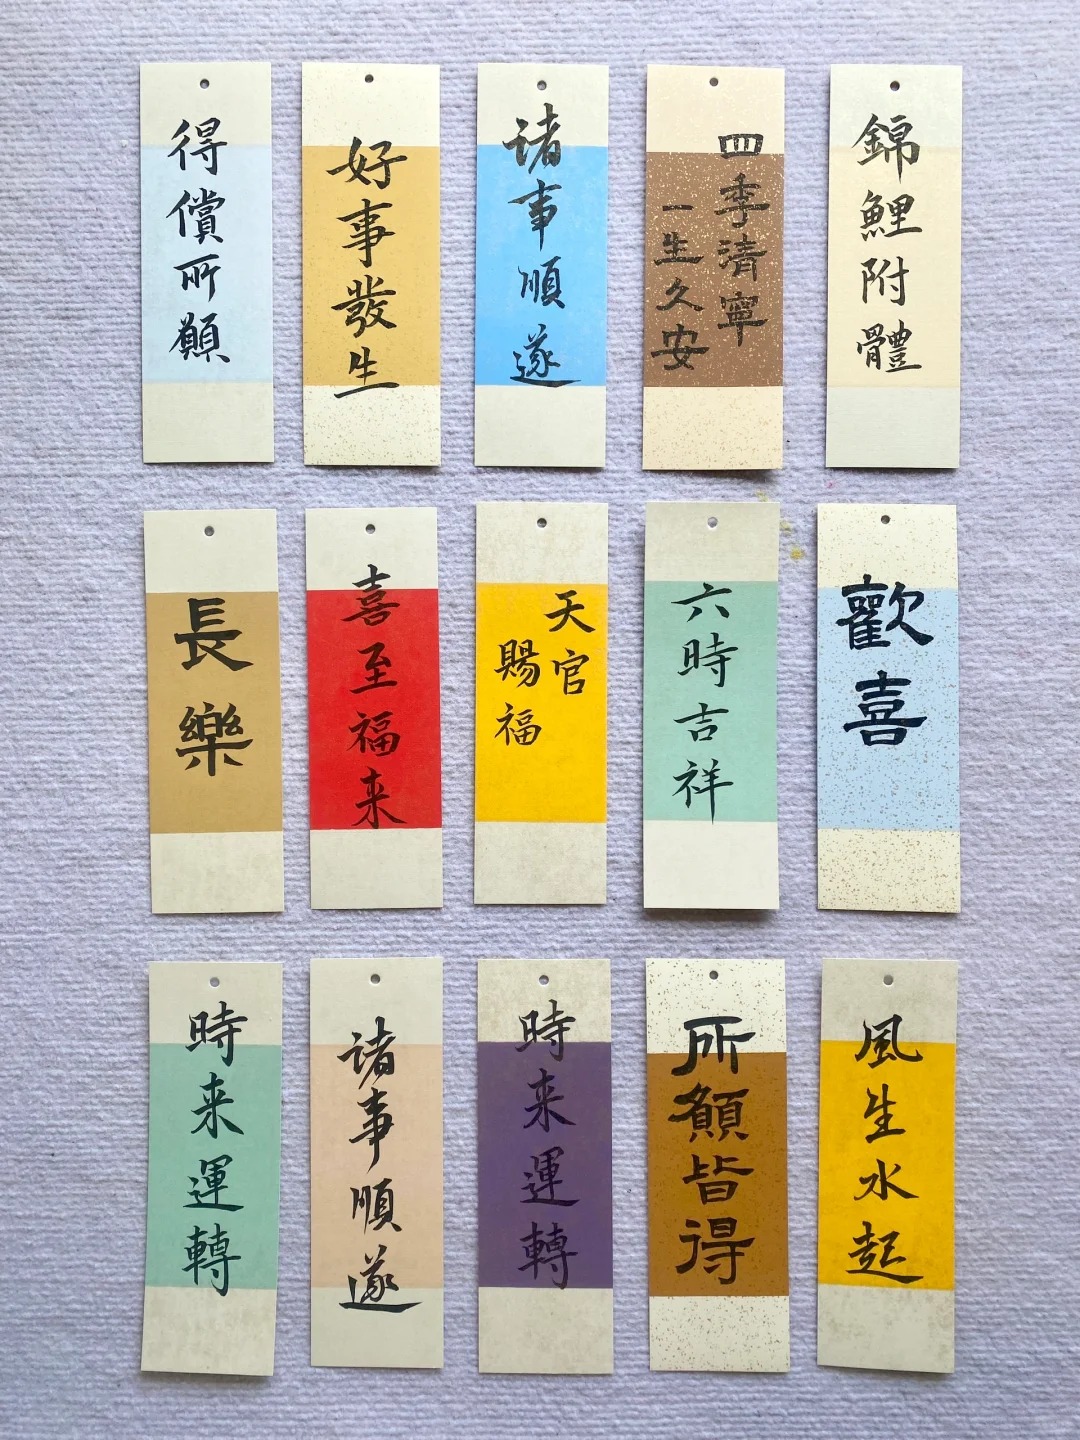 得償所願
好事發生
诸事順遂
四季清寧
一生久安
錦鯉附體
長樂
喜至福来
天官
賜福
六時吉祥
歡喜
時来運轉
诸事順遂
時来運轉
所願皆得
風生水起